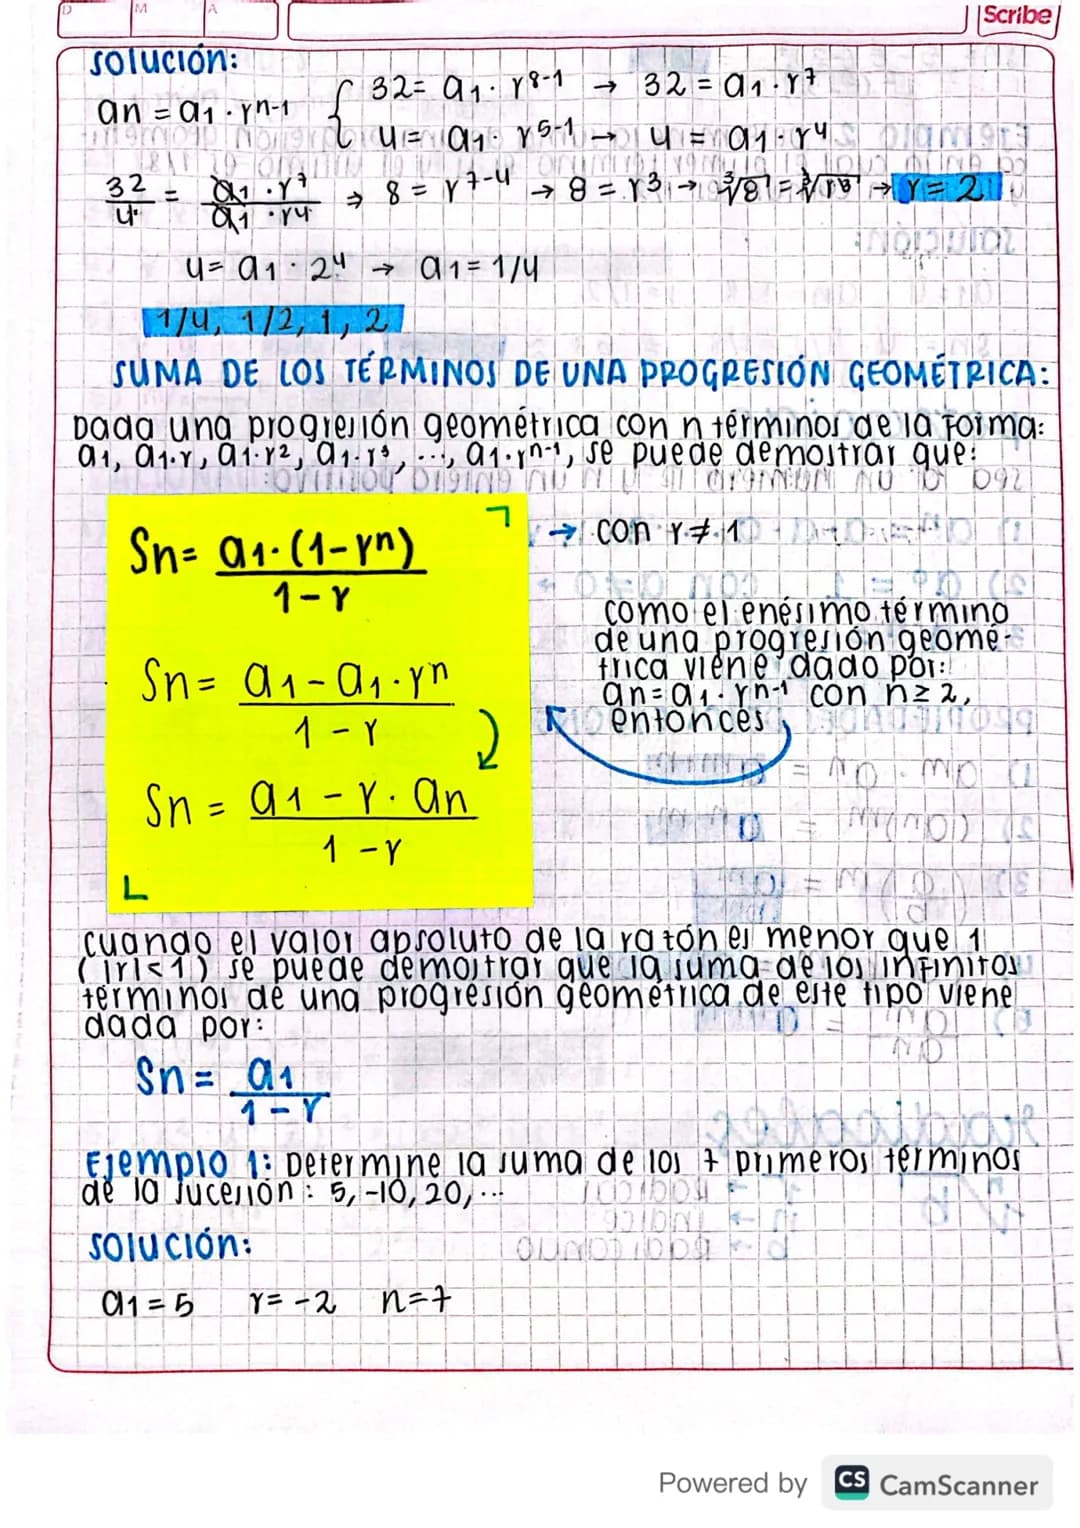 D M A
Scribe
Solución:
an = a1 · r^n-1 { 32 = a1 · r^8-1 → 32 = a1 · r^7
4 = a1 · r^5-1 → 4 = a1 · r^4
32/4 = a1 · r^7 / a1 · r^4 → 8 = r^7-4 → 8 = r^3 → ∛8 = ∛r^3 → r = 2
4 = a1 · 2^4 → a1 = 1/4
1/4, 1/2, 1, 2
SUMA DE LOS TÉRMINOS DE UNA PROGRESIÓN GEOMÉTRICA:
Dada una progresión geométrica con n términos de la forma:
a1, a1·r, a1·r^2, a1·r^3, ..., a1·r^n-1, se puede demostrar que:
Sn = a1·(1-r^n) / 1-r
→ con r ≠ 1
Sn = a1 - a1·r^n / 1-r
Sn = a1 - r · an / 1-r
como el enésimo término
de una progresión geomé-
trica viene dado por:
an = a1 · r^n-1 con n ≥ 2,
entonces
cuando el valor absoluto de la razón es menor que 1
(|r|<1) se puede demostrar que la suma de los infinitos
términos de una progresión geométrica de este tipo viene
dada por:
Sn = a1 / 1-r
Ejemplo 1: Determine la suma de los 7 primeros términos
de la sucesión: 5, -10, 20, ...
Solución:
a1 = 5 r = -2 n = 7
Powered by CS CamScanner